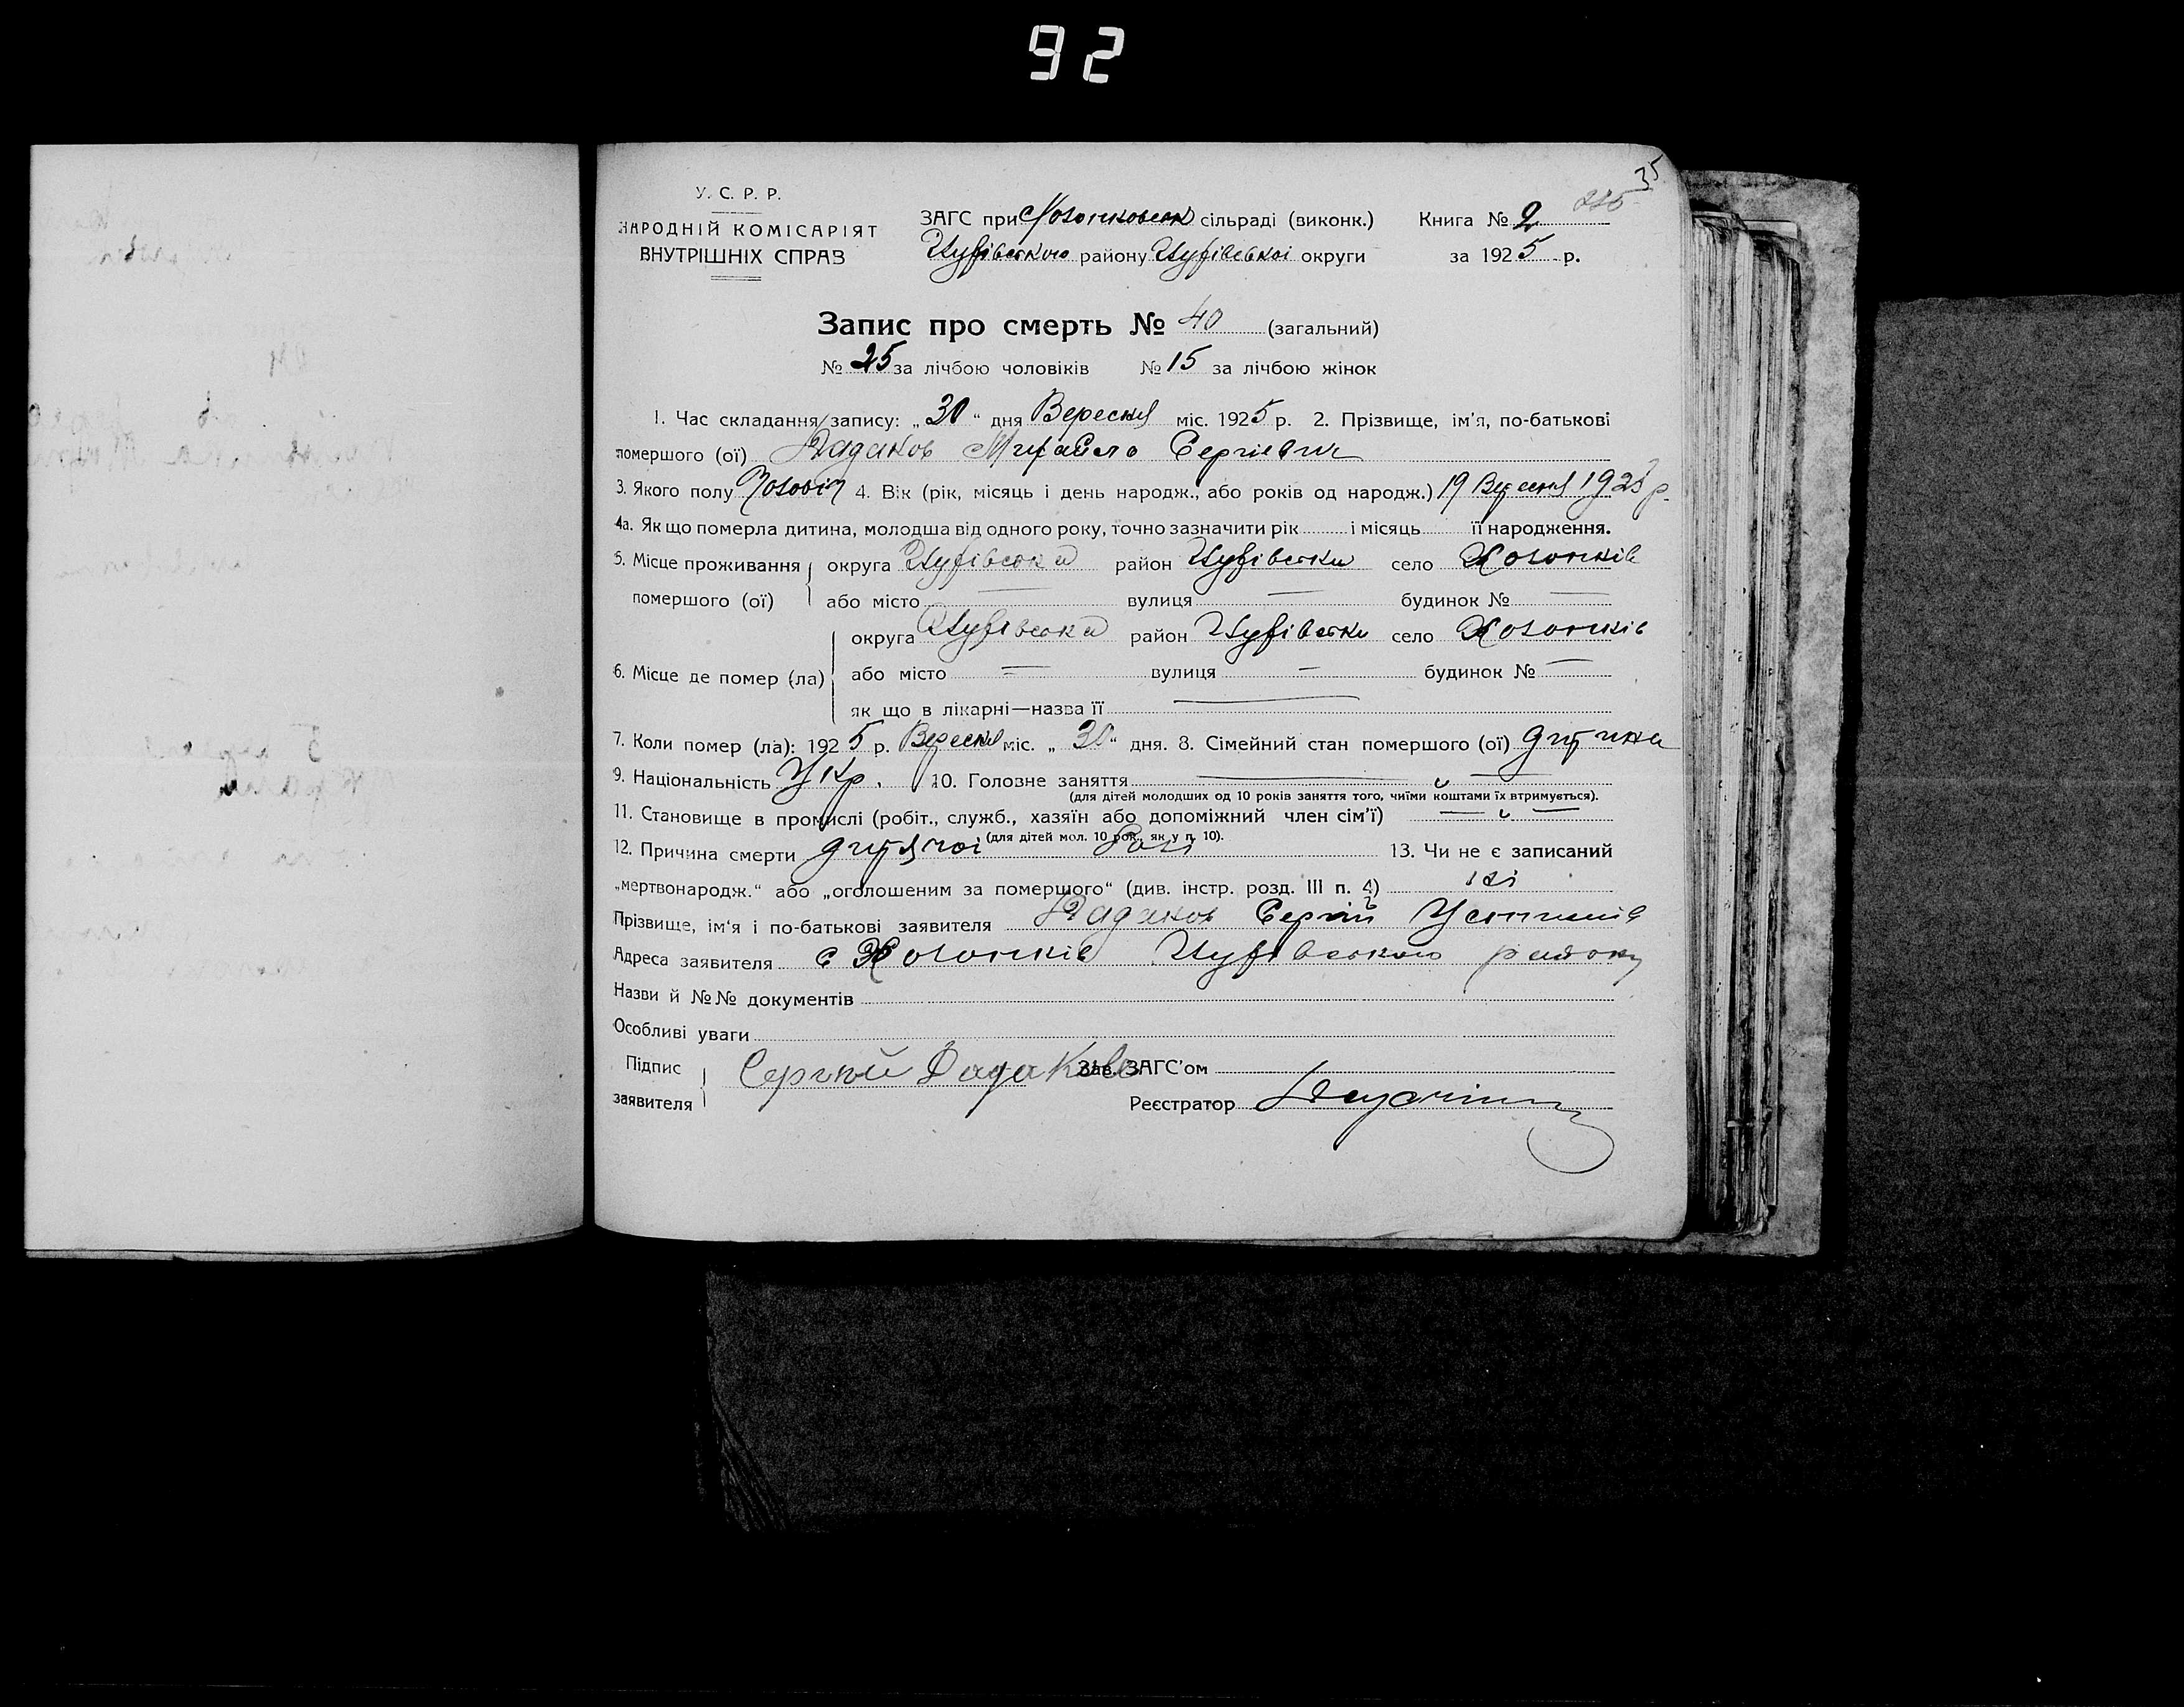 92
35
У. С. Р. Р.
НАРОДНІЙ КОМІСАРІЯТ
ВНУТРІШНІХ СПРАВ
ЗАГС при сільраді (виконк.) Книга № 2
району округи за 1925 р.
Запис про смерть № 40 (загальний)
№ 25 за лічбою чоловіків № 15 за лічбою жінок
1. Час складання запису: „30“ дня Вересня міс. 1925 р. 2. Прізвище, ім'я, по-батькові
помершого (ої) Дадаков Михайло Сергіевич
3. Якого полу 4. Вік (рік, місяць і день народж., або років од народж.) 19 Вересня р.
4а. Як що померла дитина, молодша від одного року, точно зазначити рік і місяць її народження.
5. Місце проживання округа район село
помершого (ої) або місто — вулиця — будинок № —
округа район село
6. Місце де помер (ла) або місто — вулиця — будинок № —
як що в лікарні—назва її —
7. Коли помер (ла): 1925 р. Вересня міс. „30“ дня. 8. Сімейний стан помершого (ої) дитина
9. Національність Укр. 10. Головне заняття — „ —
(для дітей молодших од 10 років заняття того, чиїми коштами їх втримується).
11. Становище в промислі (робіт., служб., хазяїн або допоміжний член сім'ї) — „ —
(для дітей мол. 10 рок., як у п. 10).
12. Причина смерти дитячої 13. Чи не є записаний
„мертвонародж.“ або „оголошеним за помершого“ (див. інстр. розд. III п. 4) ні
Прізвище, ім'я і по-батькові заявителя Дадаков Сергій
Адреса заявителя с району
Назви й №№ документів
Особливі уваги
Підпис Сергѣй Дадаковъ Зав. ЗАГС'ом
заявителя Реєстратор